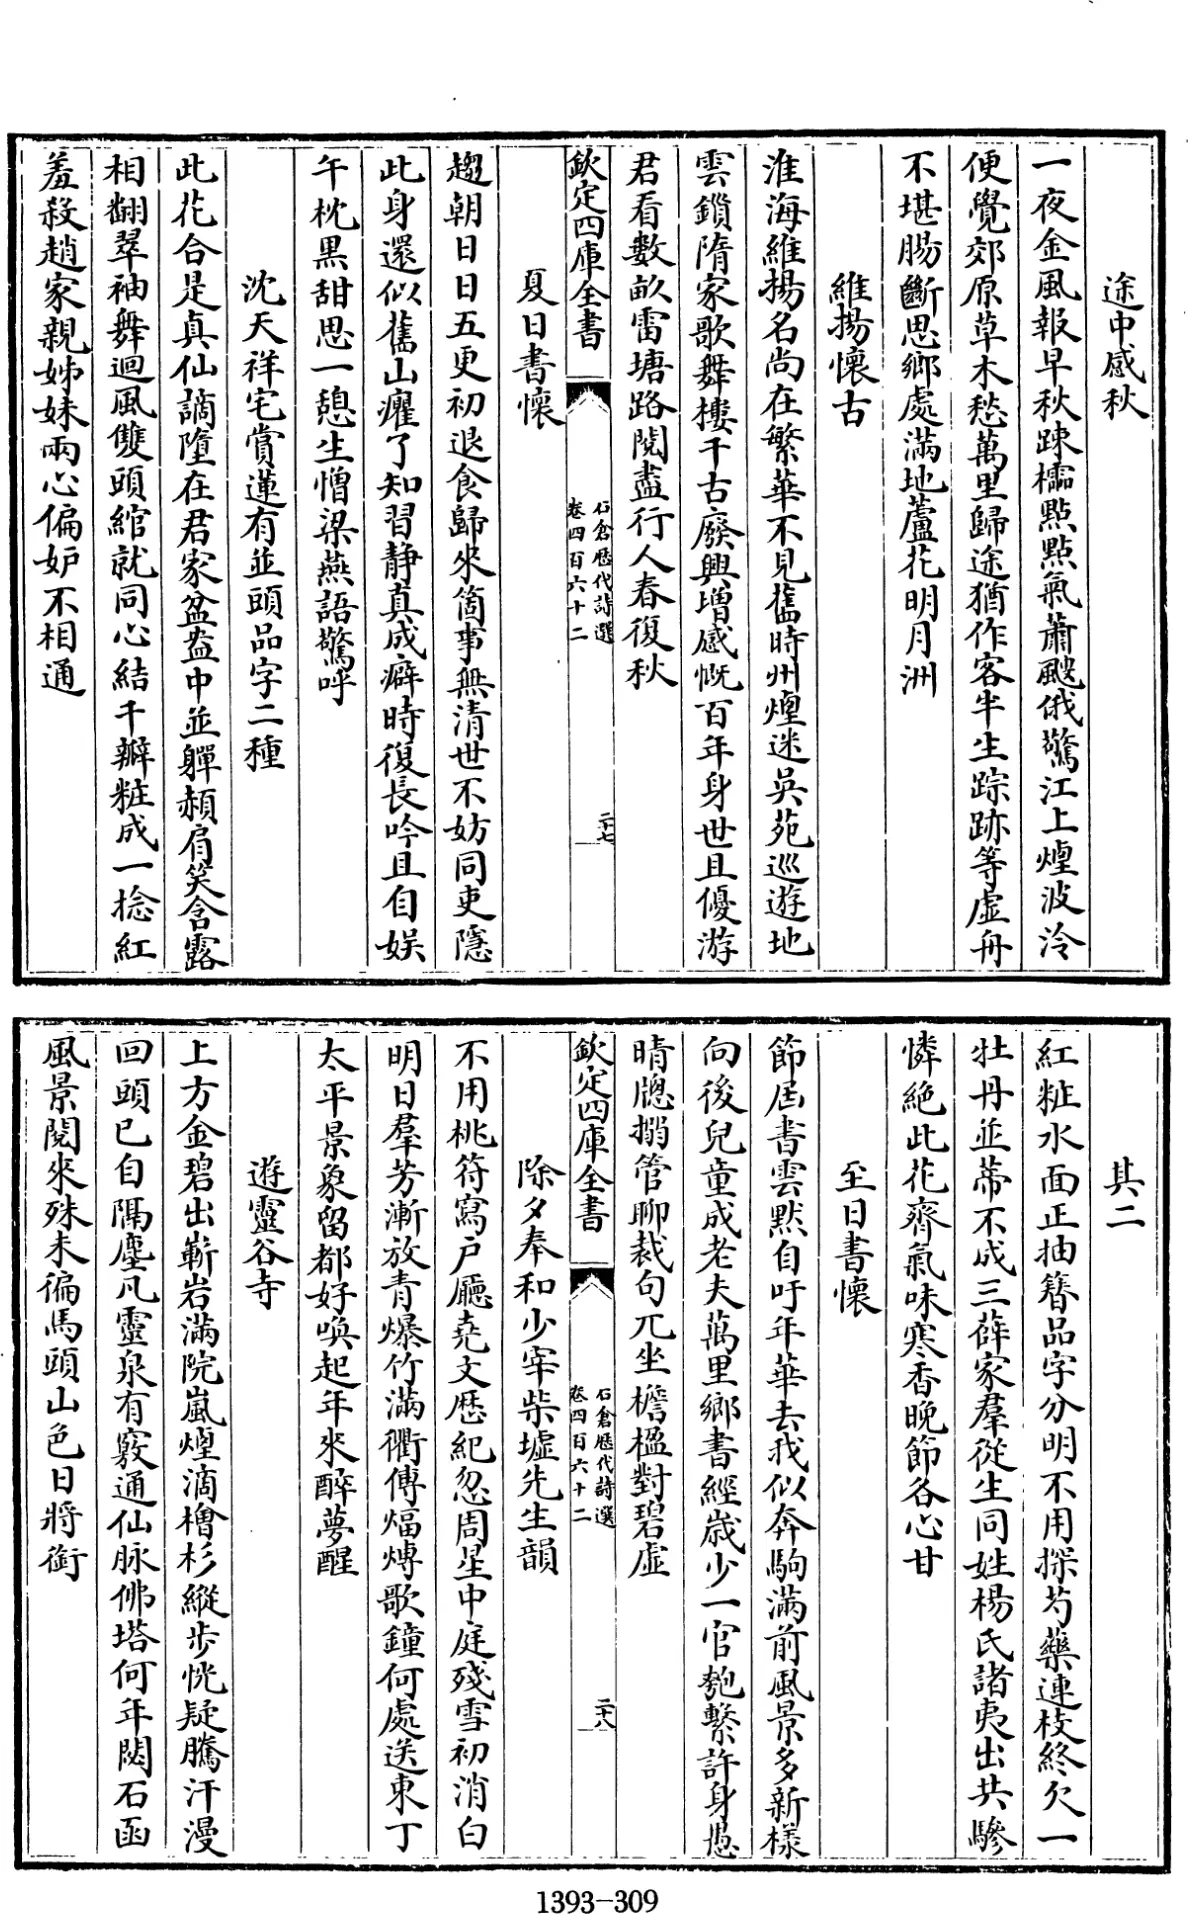 途中感秋
一夜金風報早秋踈櫺點點氣蕭颼俄驚江上煙波冷
便覺郊原草木愁萬里歸途猶作客半生踪跡等虛舟
不堪腸斷思鄉處滿地蘆花明月洲
維揚懷古
淮海維揚名尚在繁華不見舊時州煙迷吳苑巡遊地
雲鎖隋家歌舞樓千古廢興增感慨百年身世且優游
君看數畝雷塘路閱盡行人春復秋
欽定四庫全書
石倉歷代詩選
卷四百六十二
二十七
夏日書懷
趨朝日日五更初退食歸來箇事無清世不妨同吏隱
此身還似舊山癯了知習静真成癖時復長吟且自娱
午枕黑甜思一憩生憎梁燕語驚呼
沈天祥宅賞蓮有並頭品字二種
此花合是真仙謫墮在君家盆盎中並嚲頳肩笑含露
相翻翠袖舞迴風雙頭綰就同心結千瓣粧成一捻紅
羞殺趙家親姊妹兩心偏妒不相通
其二
紅粧水面正抽簪品字分明不用探芍藥連枝終欠一
牡丹並蒂不成三薛家羣從生同姓楊氏諸夷出共驂
憐絶此花齊氣味寒香晚節各心甘
至日書懷
節届書雲黙自吁年華去我似奔駒滿前風景多新様
向後兒童成老夫萬里鄉書經歲少一官匏繫許身愚
晴牕搦管聊裁句兀坐檐楹對碧虛
欽定四庫全書
石倉歷代詩選
卷四百六十二
二十八
除夕奉和少宰柴墟先生韻
不用桃符寫户廳堯文歷紀忽周星中庭殘雪初消白
明日羣芳漸放青爆竹滿衢傳煏煿歌鐘何處送東丁
太平景象留都好喚起年來醉夢醒
遊靈谷寺
上方金碧出嶄岩滿院嵐煙滴檜杉縱步恍疑騰汗漫
回頭已自隔塵凡靈泉有竅通仙脉佛塔何年閟石函
風景閱來殊未徧馬頭山色日將銜
1393-309